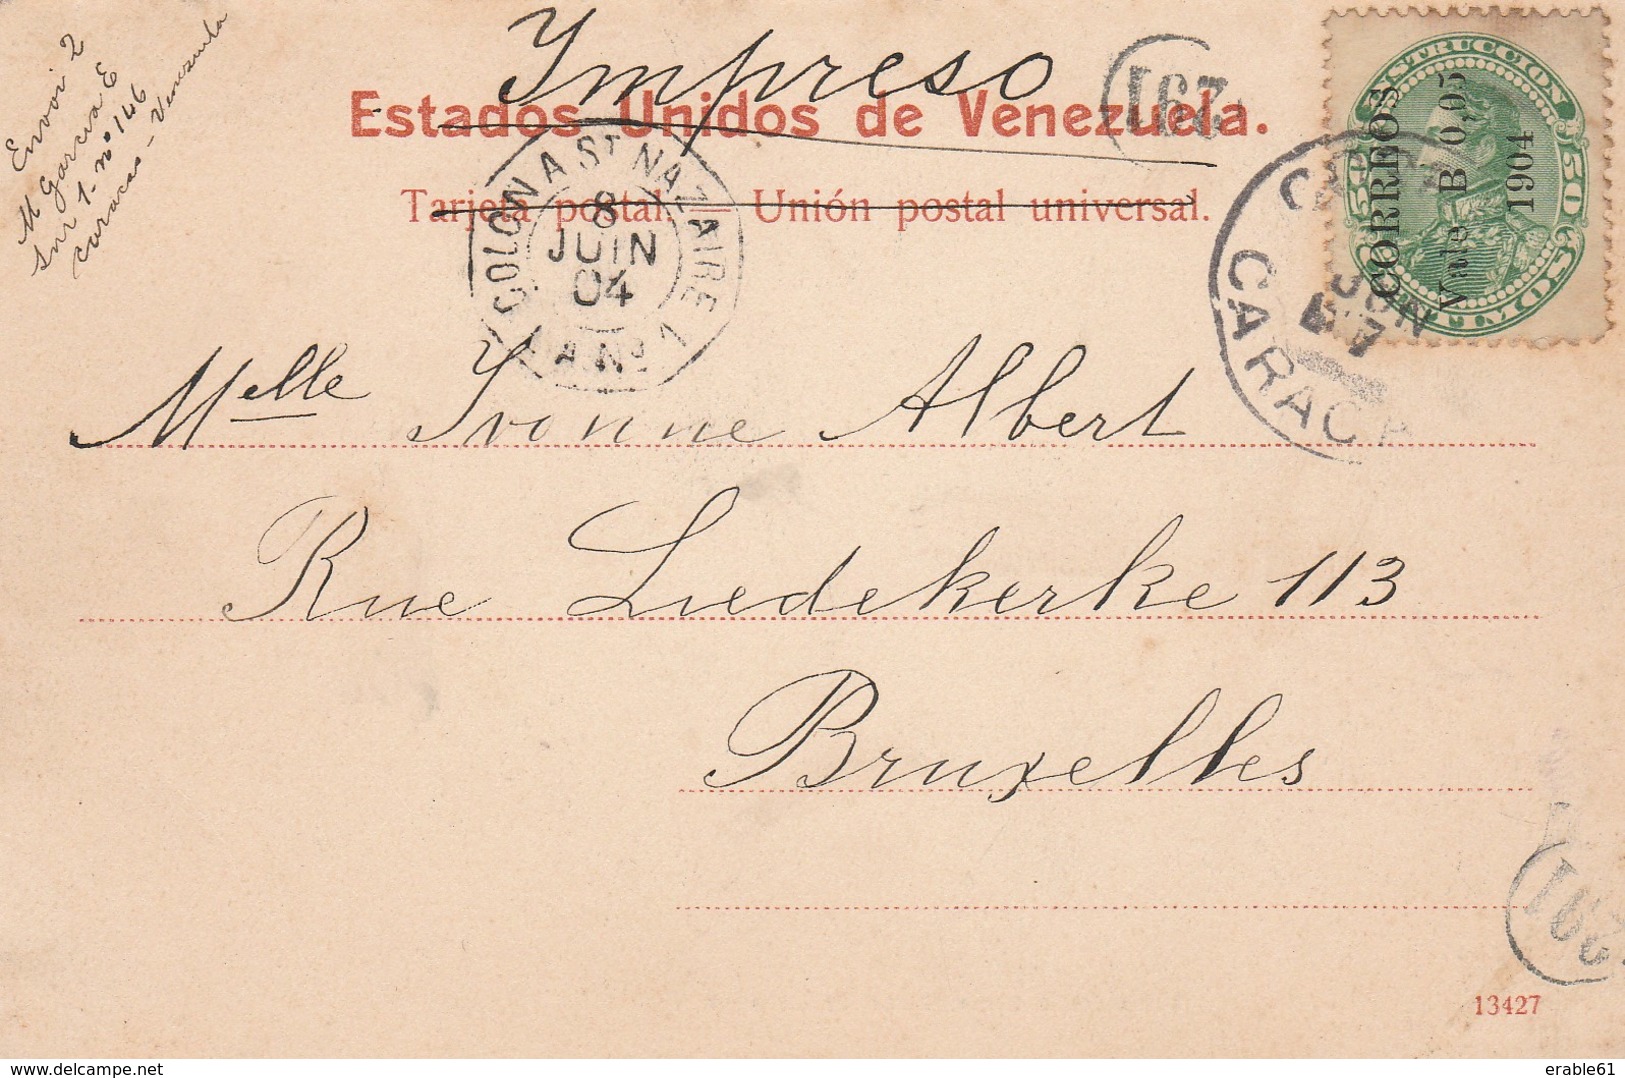 Envoi 2
M Garcia E
Sur 1 - nº 146
Caracas - Venezuela
Impreso
Estados Unidos de Venezuela.
Tarjeta postal. — Unión postal universal.
291
COLON A ST NAZAIRE
8
JUIN
04
INSTRUCCION
CORREOS
Vale B 0,05
1904
50
50
CARACAS
JUN
7
Melle Yvonne Albert
Rue Liedekerke 113
Bruxelles
291
13427
delcampe.net
erable61